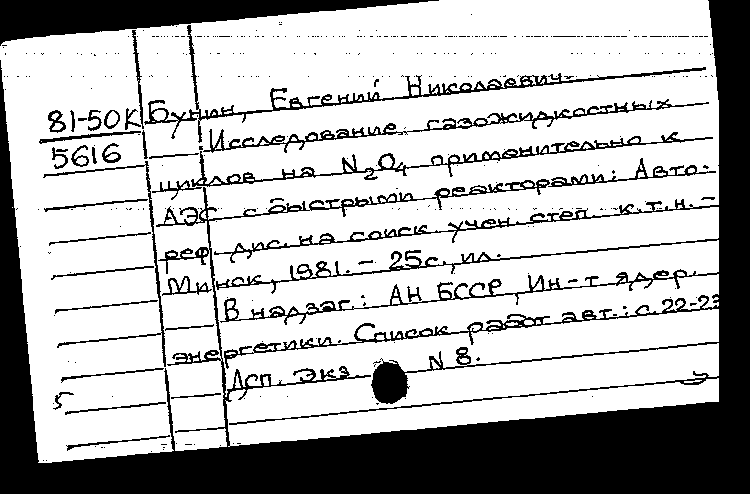 81-50К
5616
Бунин, Евгений Николаевич.
Исследование газожидкостных
циклов на N2O4 применительно к
АЭС с быстрыми реакторами: Авто-
реф. дис. на соиск. учен. степ. к.т.н. -
Минск, 1981. - 25с., ил.
В надзаг.: АН БССР, Ин-т ядер.
энергетики. Список работ авт.: с.22-23
Дсп. Экз. N 8.
5